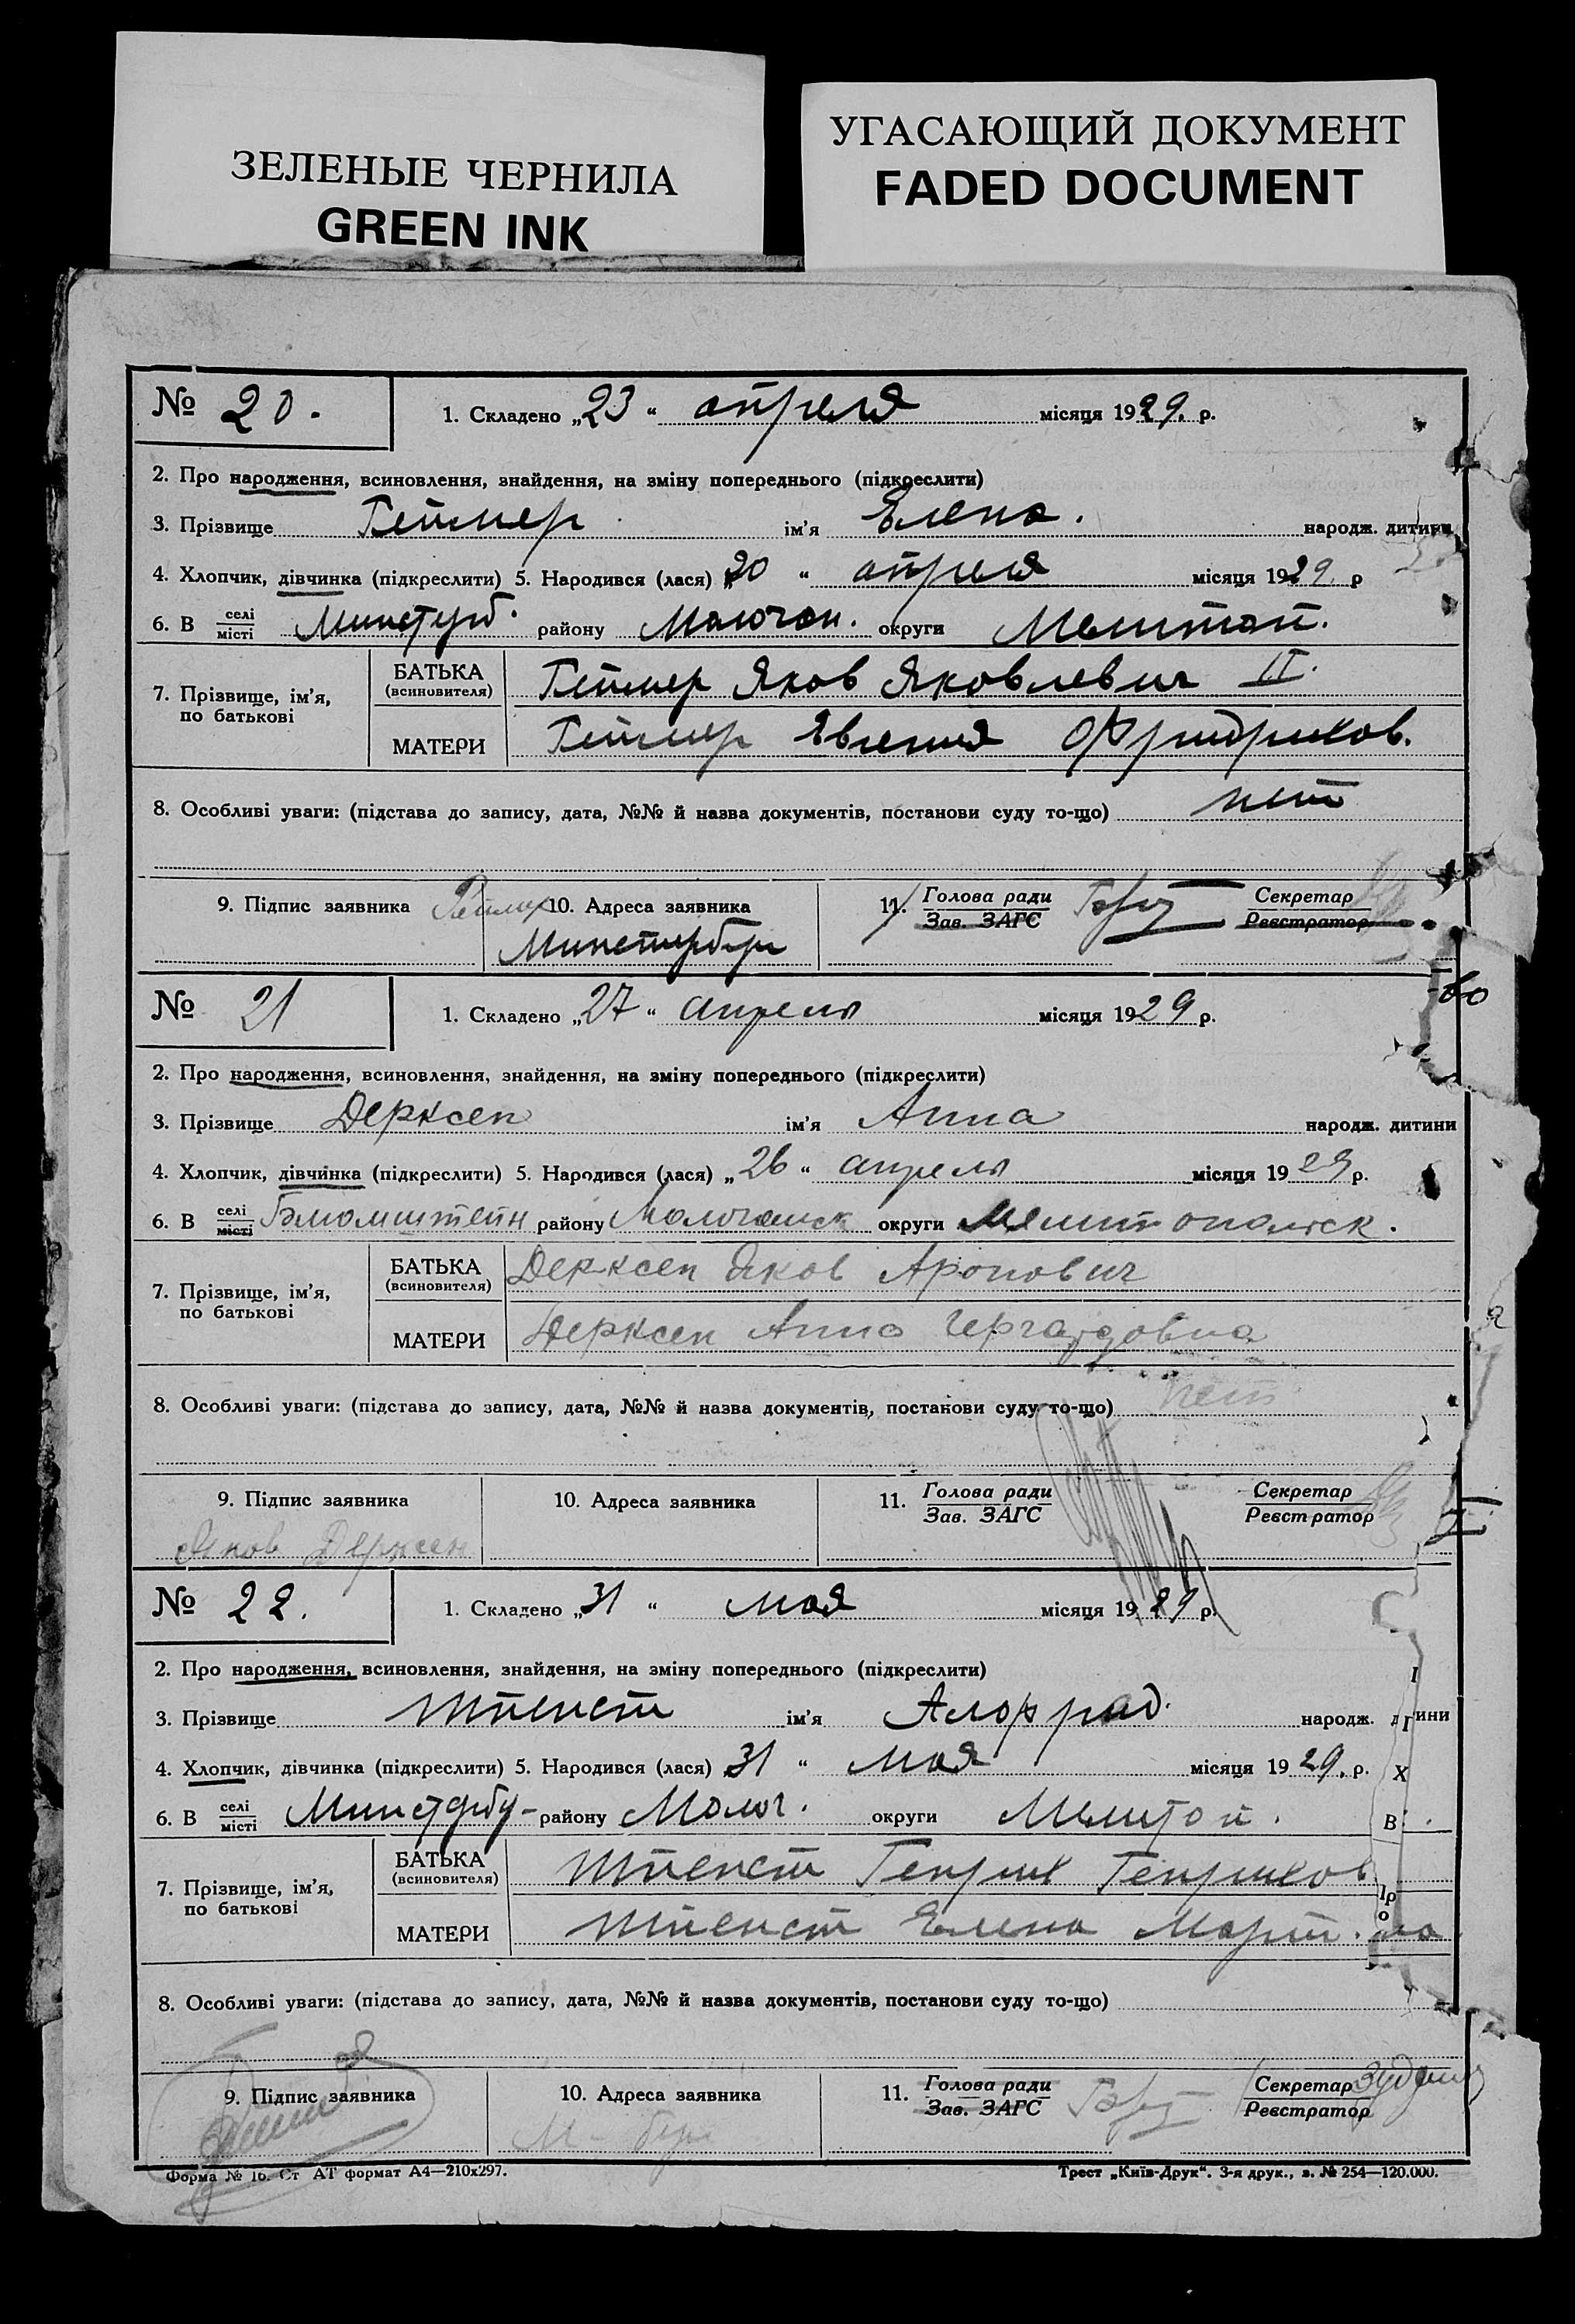 ЗЕЛЕНЫЕ ЧЕРНИЛА
GREEN INK
УГАСАЮЩИЙ ДОКУМЕНТ
FADED DOCUMENT
№ 20. 1. Складено „23“ апреля місяця 1929. р.
2. Про народження, всиновлення, знайдення, на зміну попереднього (підкреслити)
3. Прізвище ім'я Елена. народж. дитини
4. Хлопчик, дівчинка (підкреслити) 5. Народився (лася) „20“ апреля місяця 1929. р
6. В селі місті району Молочан. округи Мелитоп.
7. Прізвище, ім'я, по батькові
БАТЬКА (всиновителя) Яков Яковлевич II.
МАТЕРИ Евгения Фридриков.
8. Особливі уваги: (підстава до запису, дата, №№ й назва документів, постанови суду то-що) нет
9. Підпис заявника 10. Адреса заявника 11. Голова ради Зав. ЗАГС Секретар Реєстратор
Минстерберг
№ 21 1. Складено „27“ апреля місяця 1929 р.
2. Про народження, всиновлення, знайдення, на зміну попереднього (підкреслити)
3. Прізвище Дерксен ім'я Анна народж. дитини
4. Хлопчик, дівчинка (підкреслити) 5. Народився (лася) „26“ апреля місяця 1929 р.
6. В селі місті Блюмштейн району Молочанск округи Мелитопольск.
7. Прізвище, ім'я, по батькові
БАТЬКА (всиновителя) Дерксен Яков Аронович
МАТЕРИ Дерксен Анна Гергардовна
8. Особливі уваги: (підстава до запису, дата, №№ й назва документів, постанови суду то-що) нет
9. Підпис заявника 10. Адреса заявника 11. Голова ради Зав. ЗАГС Секретар Реєстратор
Яков Дерксен
№ 22. 1. Складено „31“ мая місяця 1929 р.
2. Про народження, всиновлення, знайдення, на зміну попереднього (підкреслити)
3. Прізвище Штенст ім'я народж. дитини
4. Хлопчик, дівчинка (підкреслити) 5. Народився (лася) 31“ мая місяця 1929. р.
6. В селі місті району Молоч. округи Мелитоп.
7. Прізвище, ім'я, по батькові
БАТЬКА (всиновителя) Штенст Генрих Генрихов
МАТЕРИ Штенст Елена
8. Особливі уваги: (підстава до запису, дата, №№ й назва документів, постанови суду то-що)
9. Підпис заявника 10. Адреса заявника 11. Голова ради Зав. ЗАГС Секретар Реєстратор
Форма № 16. Ст АТ формат А4—210х297.
Трест „Київ-Друк“. 3-я друк., з. № 254—120.000.